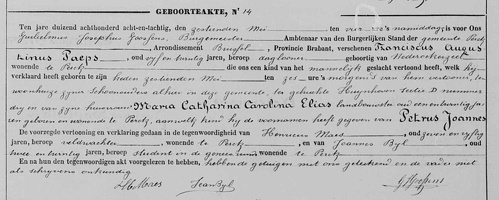 GEBOORTEAKTE, N° 14
Ten jare duizend achthonderd acht-en-tachtig, den zestienden Mei ten vier ure's namiddags is voor Ons
Guilielmus Josephus Goossens, Burgemeester Ambtenaar van den Burgerlijken Stand der gemeente
Arrondissement Brussel, Provincie Brabant, verschenen Franciscus Augus
tinus Paeps, oud vyf en twintig jaren, beroep daglooner geboortig van Nederockerzeel
wonende te die ons een kind van mannelijk geslacht vertoond heeft, welk hij
verklaard heeft geboren te zijn heden zestienden Mei ten zes ure's morgens van hem vertooner, ten
woonhuize zyner Schoonouders alhier in deze gemeente, ter gehuchte Sectie D nummer
dry en van zyne huisvrouw Maria Catharina Carolina Elias landbouwster oud een en twintig ja
ren geboren en wonende te aan welk kind hij de voornamen heeft gegeven van Petrus Joannes
De voorzegde vertooning en verklaring gedaan in de tegenwoordigheid van Henricus Maes oud zeven en vyftig
jaren, beroep veldwachter, wonende te en van Joannes Byl, oud
twee en twintig jaren, beroep student in de geneeskunde wonende te
En na hun den tegenwoordigen akt voorgelezen te hebben, hebben de getuigen met ons geteekend en de vader niet
als schryvens onkundig
H. Maes Jean Byl G J Goossens